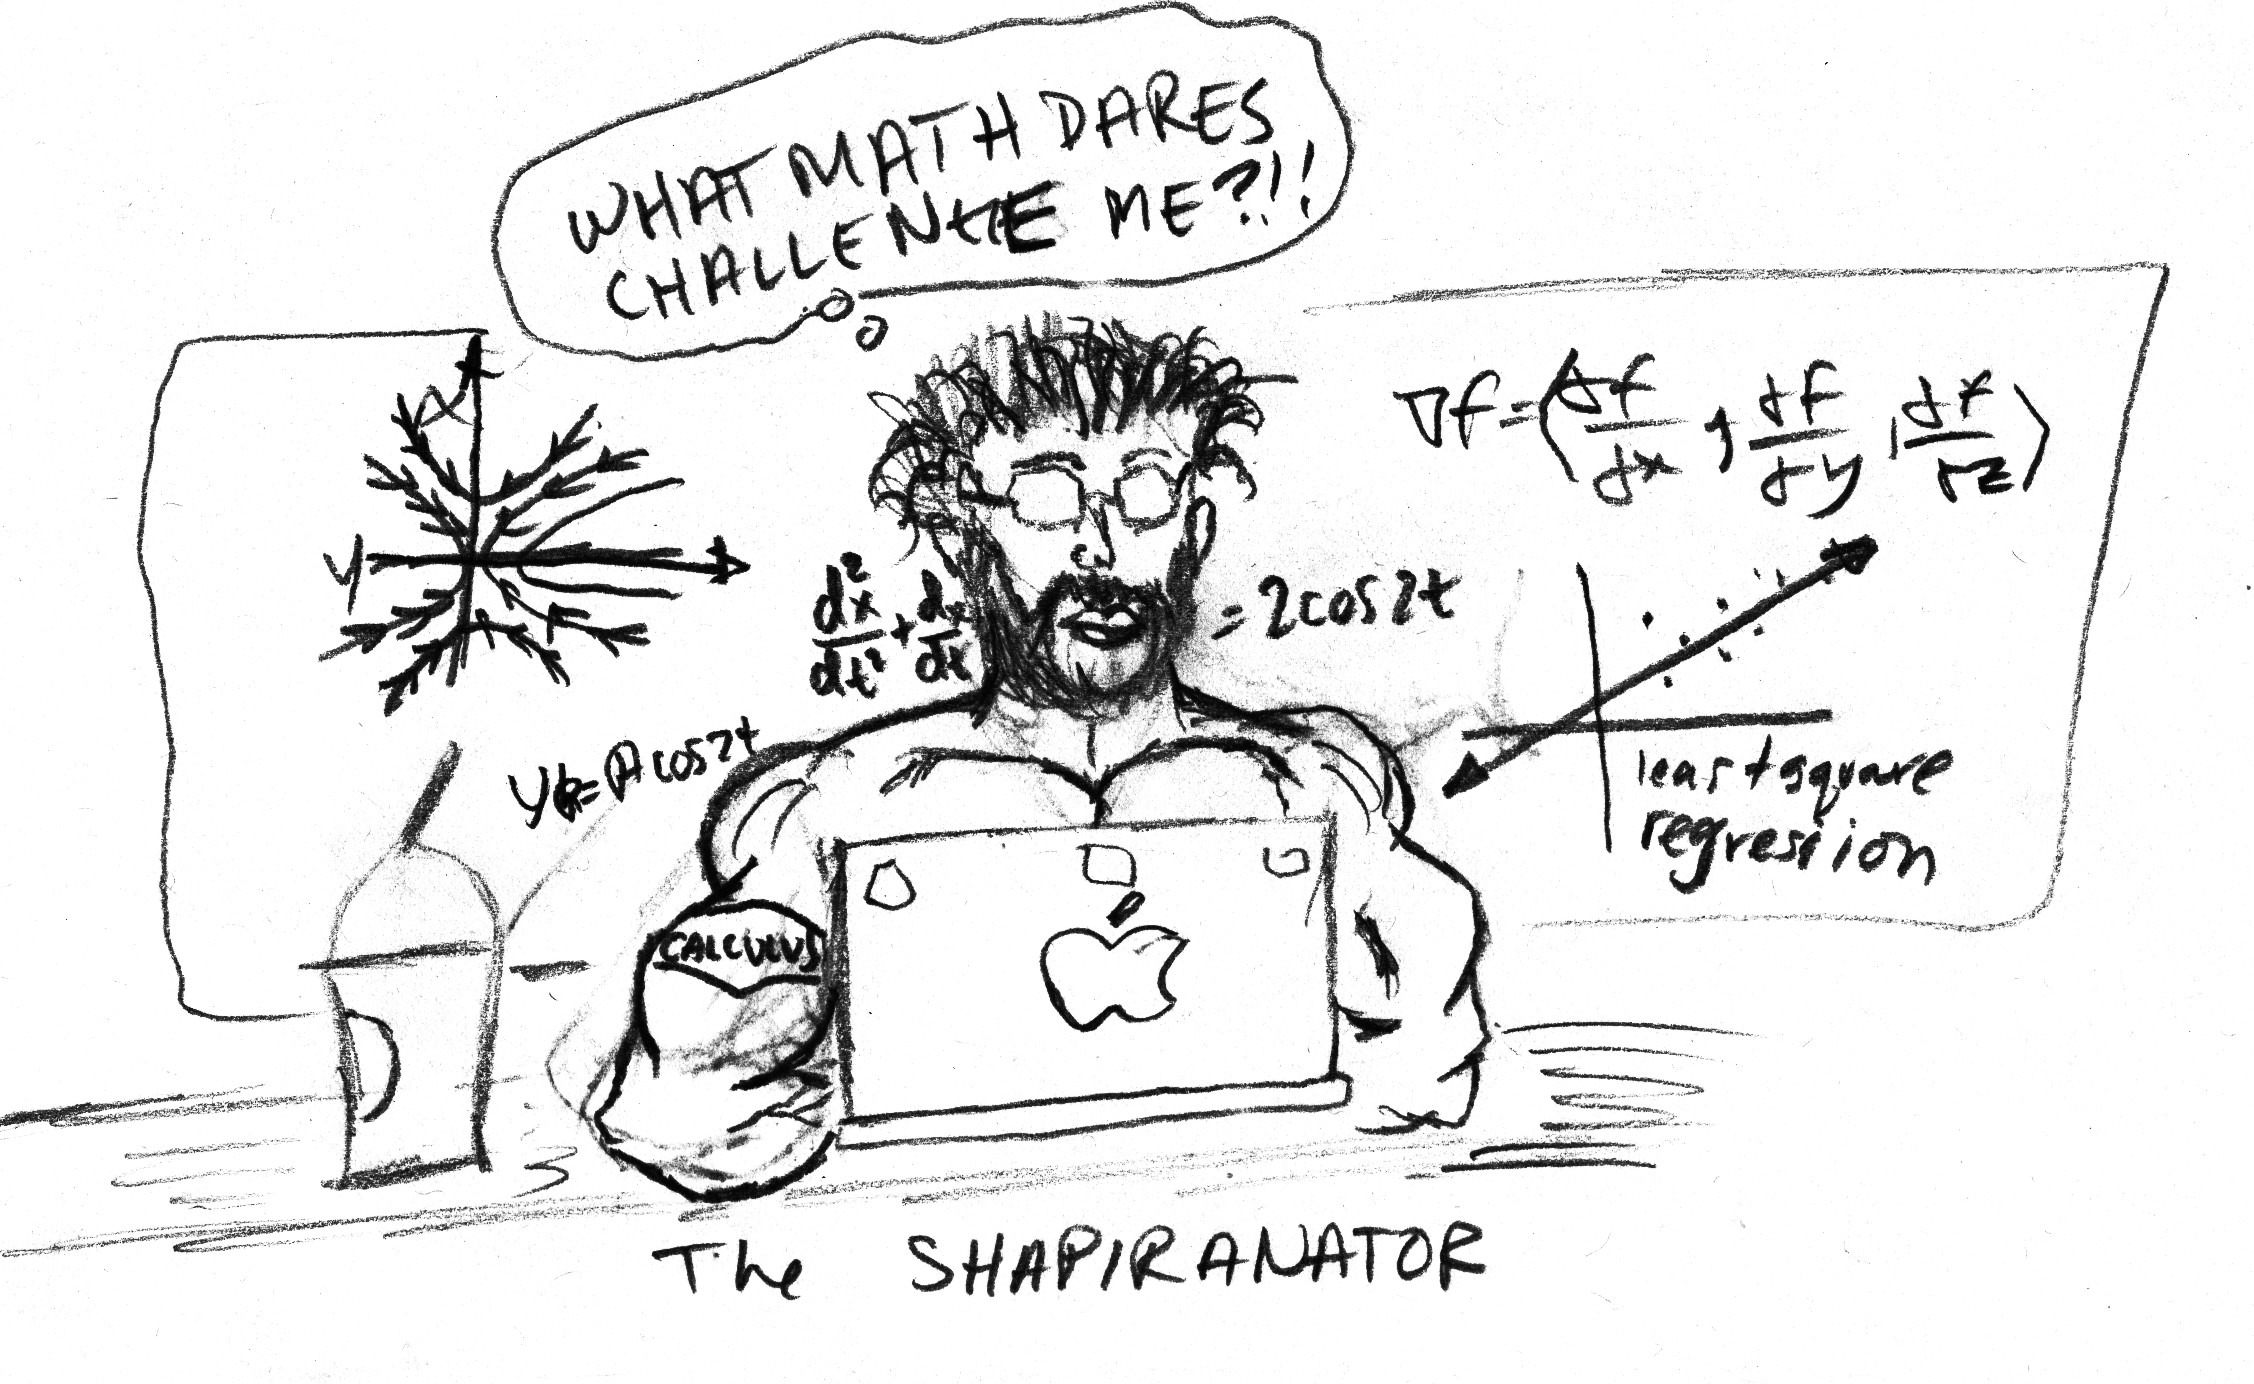 WHAT MATH DARES
CHALLENGE ME?!!
x
y
∇f=⟨df/dx, df/dy, df/dz⟩
d²x/dt² + dx/dt = 2cos2t
y = A cos2t
least square
regression
CALCULUS
The SHAPIRANATOR